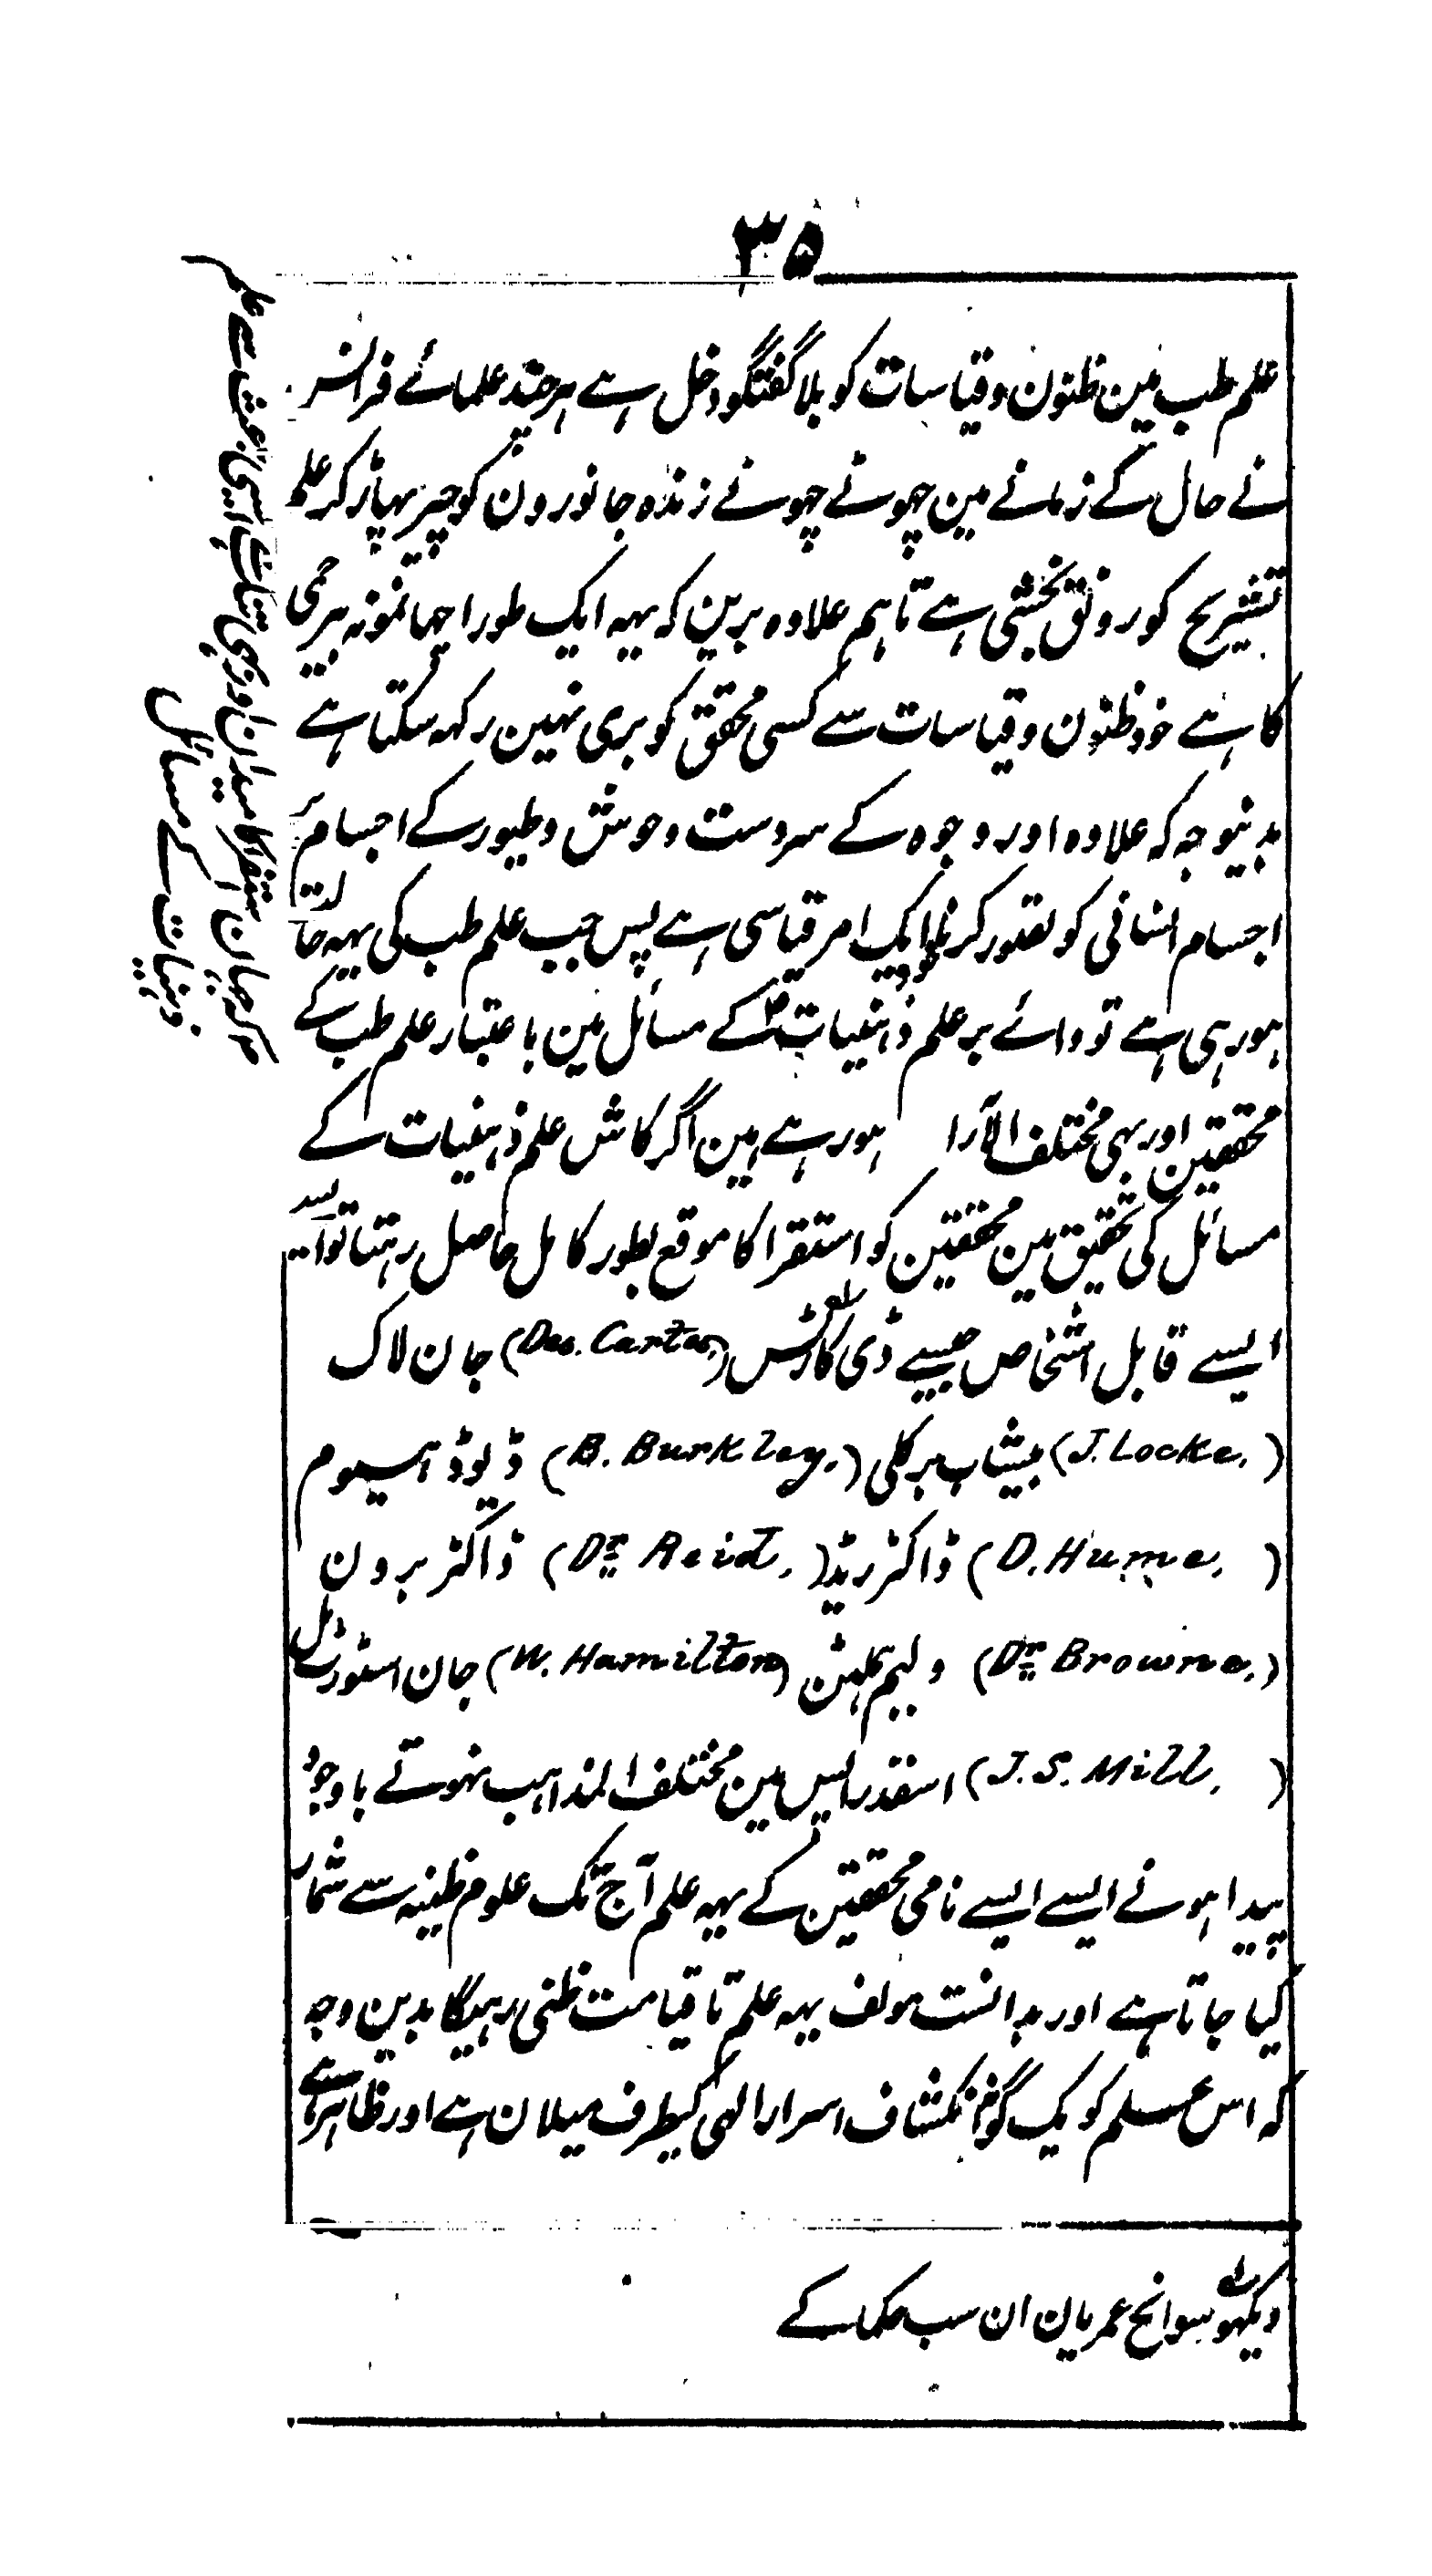 ۳۵
علم طب مین ظنون وقیاسات کو بلا گفتگو دخل ہے ہر چند علمائے فرانس
نے حال کے زمانے مین چھوٹے چھوٹے زندہ جانورون کو چیر پہاڑ کر علم
تشریح کو رونق بخشی ہے تاہم علاوہ برین کہ یہہ ایک طور اچھا نمونہ بیرحمی
کا ہے خود ظنون وقیاسات سے کسی محقق کو بری نہین رکہہ سکتا ہے
بدینوجہ کہ علاوہ اور وجوہ کے سردست وحوش وطیور کے اجسام پر
اجسام انسانی کو تصور کرنا خود ایک امر قیاسی ہے پس جب علم طب کی یہہ حالت
ہو رہی ہے تو وائے بر علم ذہنیات جس کے مسائل مین باعتبار علم طب کے
محققین اور بھی مختلف الآرا ہو رہے ہین اگر کاش علم ذہنیات کے
مسائل کی تحقیق مین محققین کو استقرا کا موقع بطور کامل حاصل رہتا تو ایسے
ایسے قابل اشخاص جیسے ڈی کارٹس (Des. Cartes.) جان لاک
(J. Locke.) بیشاب برکلی (B. Burkley.) ڈیوڈ ہیوم
(D. Hume.) ڈاکٹر ریڈ (Dr Reid.) ڈاکٹر برون
(Dr Browne.) ولیم ہملٹن (W. Hamilton) جان اسٹورٹ مل
(J. S. Mill.) اسقدر اپس مین مختلف المذاہب نہوتے باوجود
پیدا ہونے ایسے ایسے نامی محققین کے یہہ علم آج تک علوم ظنیہ سے شمار
کیا جاتا ہے اور بدانست مولف یہہ علم تا قیامت ظنی رہیگا بدین وجہ
کہ اس علم کو یک گونہ انکشاف اسرار الہی کیطرف میلان ہے اور ظاہر ہے
دیکھو سوانح عمریان ان سب حکما کے
ذہنیات کے مسائل